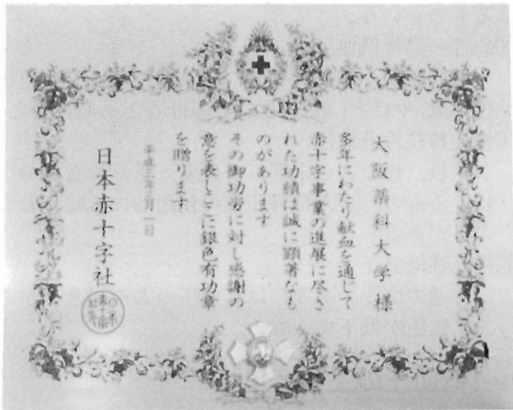 大阪薬科大学様
多年にわたり献血を通じて
赤十字事業の進展に尽さ
れた功績は誠に顕著なも
のがあります
その御功労に対し感謝の
意を表しここに銀色有功章
を贈ります
日本赤十字社